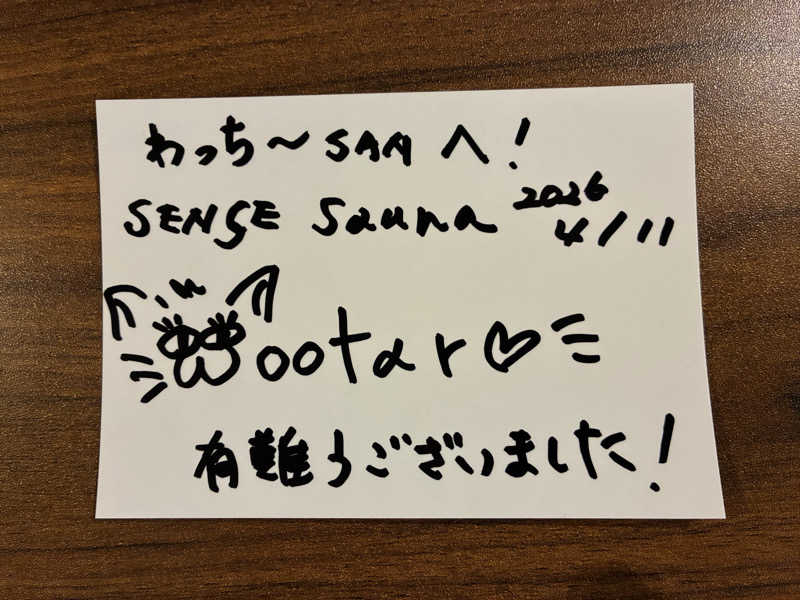 わっち〜SAMへ!
SENSE Sauna 2026 4/11
Wootar♡
有難うございました!